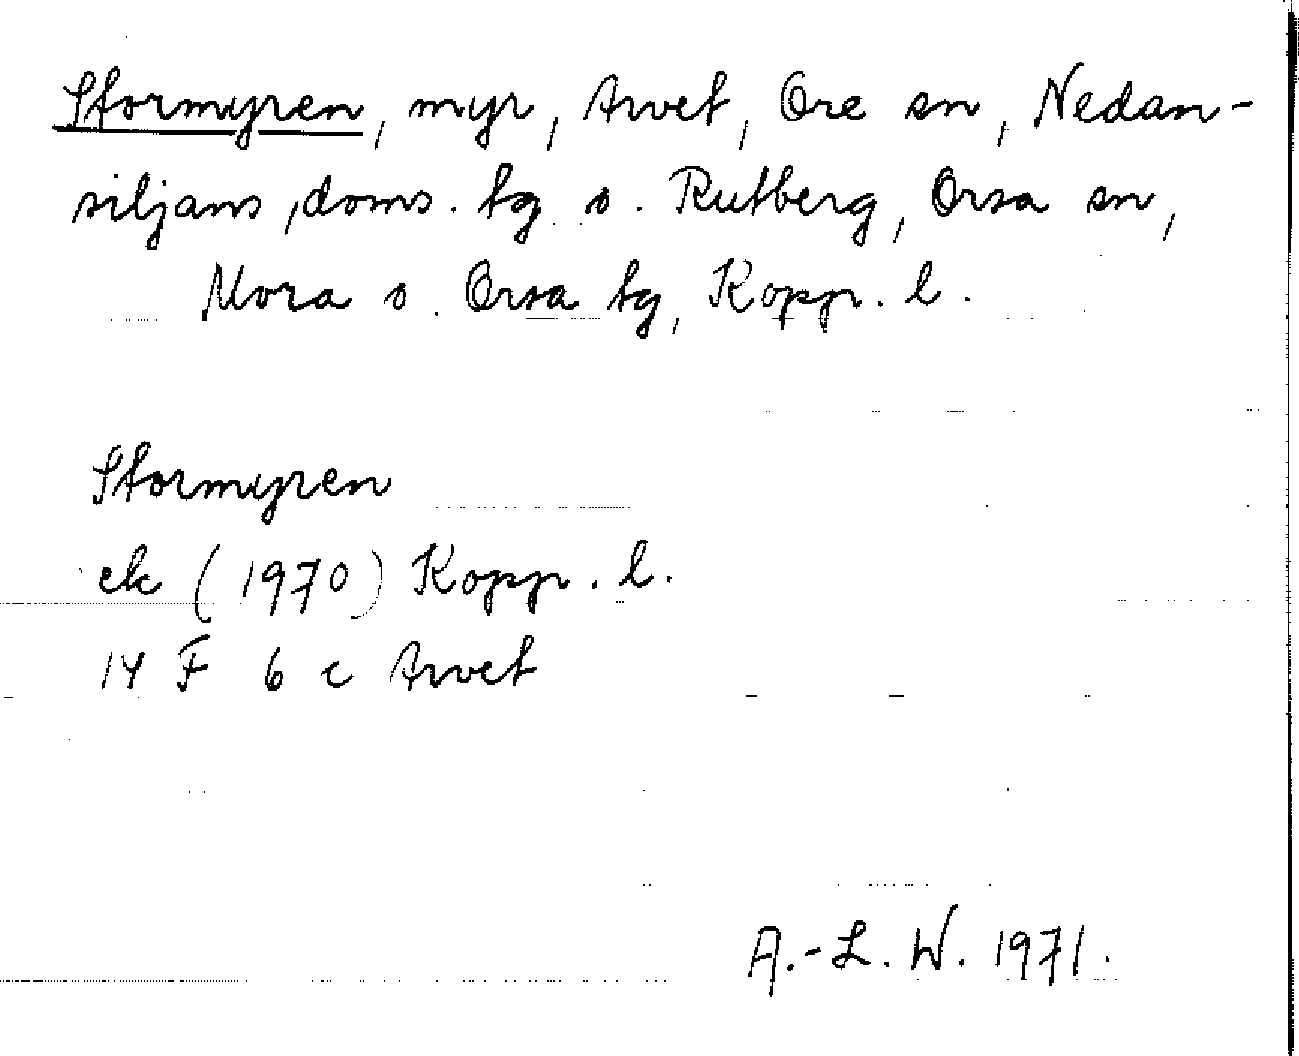 Stormyren, myr, Arvet, Ore sn, Nedan-
siljans, doms. tg o. Rutberg, Orsa sn,
Mora o. Orsa tg, Kopp. l.
Stormyren
ek (1970) Kopp. l.
14 F 6 c Arvet
A.-L. W. 1971.